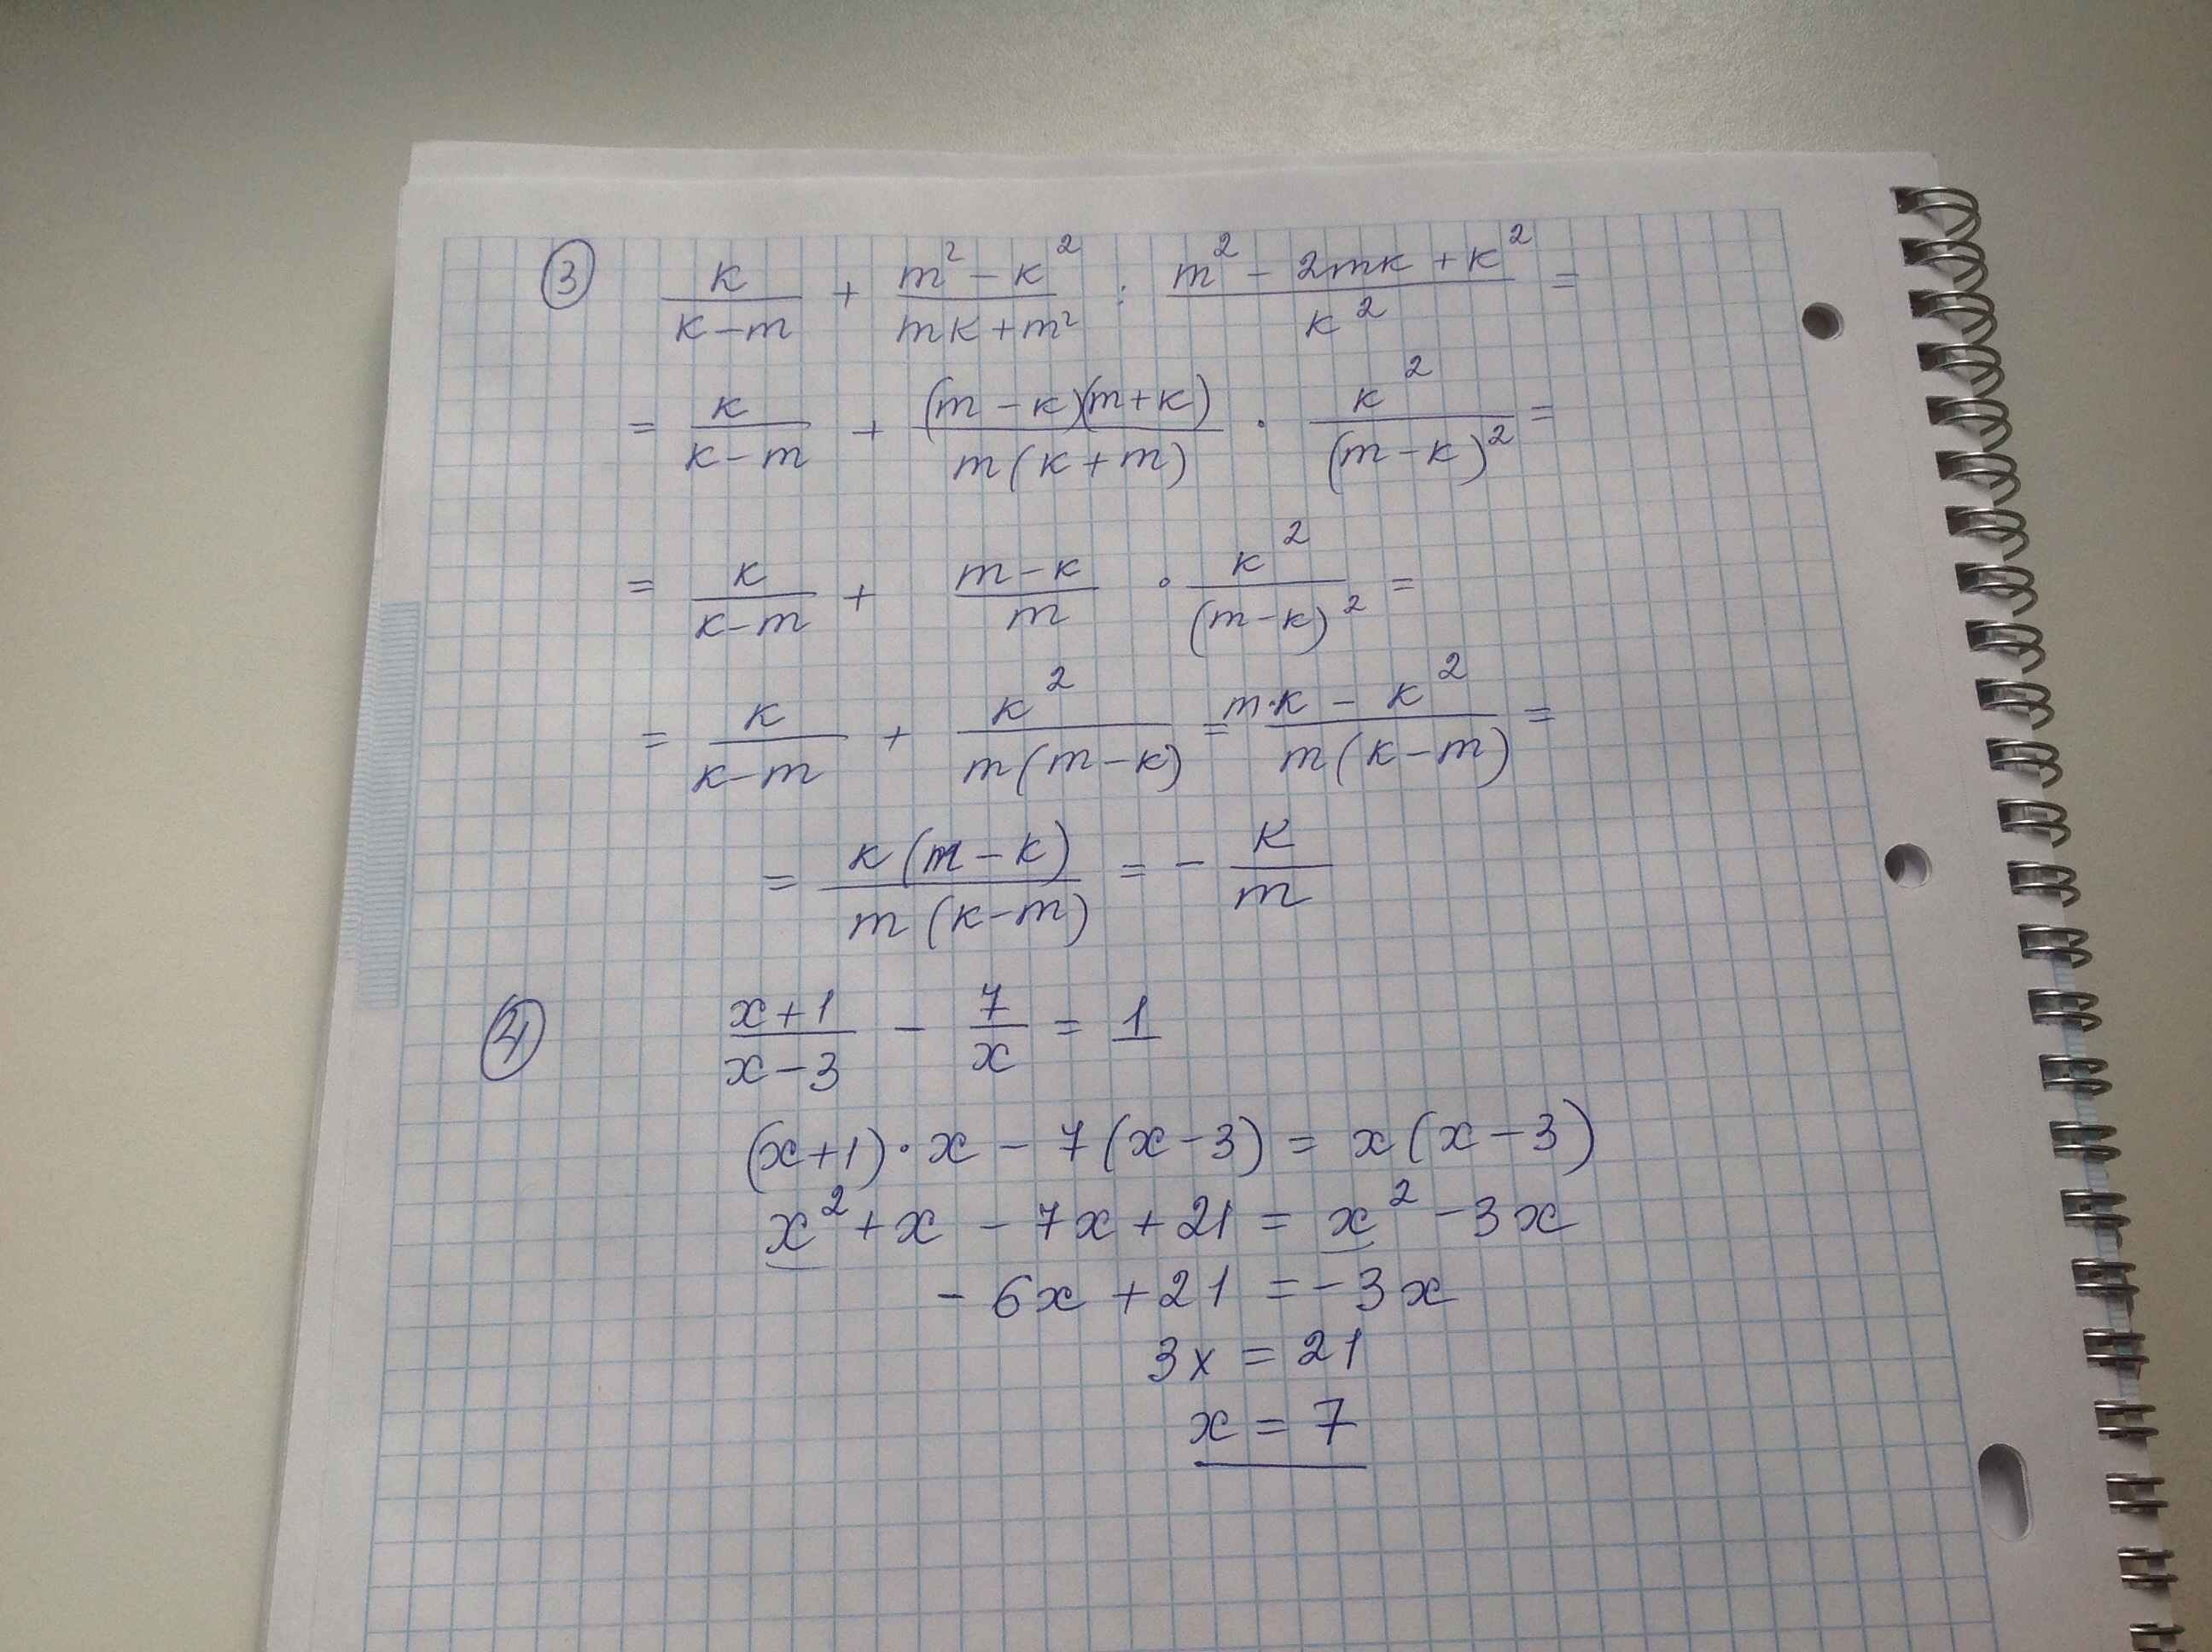 ③ k/(k-m) + (m²-k²)/(mk+m²) : (m²-2mk+k²)/k² =
= k/(k-m) + (m-k)(m+k)/(m(k+m)) · k²/(m-k)² =
= k/(k-m) + (m-k)/m · k²/(m-k)² =
= k/(k-m) + k²/(m(m-k)) = (m·k-k²)/(m(k-m)) =
= k(m-k)/(m(k-m)) = - k/m
④ (x+1)/(x-3) - 7/x = 1
(x+1)·x - 7(x-3) = x(x-3)
x²+x - 7x+21 = x²-3x
-6x+21 = -3x
3x = 21
x = 7